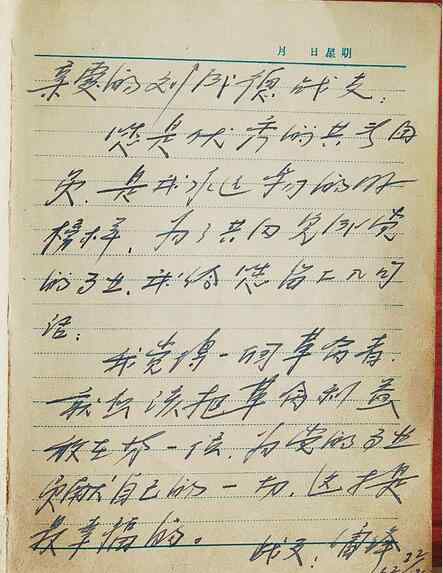 月 日 星期
亲爱的刘成战友:
您是优秀的共青团
员、是我永远学习的好
榜样,为了共同完成党
的事业,我给您留上几句
话:
我觉得一個革命者,
就应该把革命利益
放在第一位,为党的事业
贡献自己的一切,这才是
最幸福的。
战友:雷锋